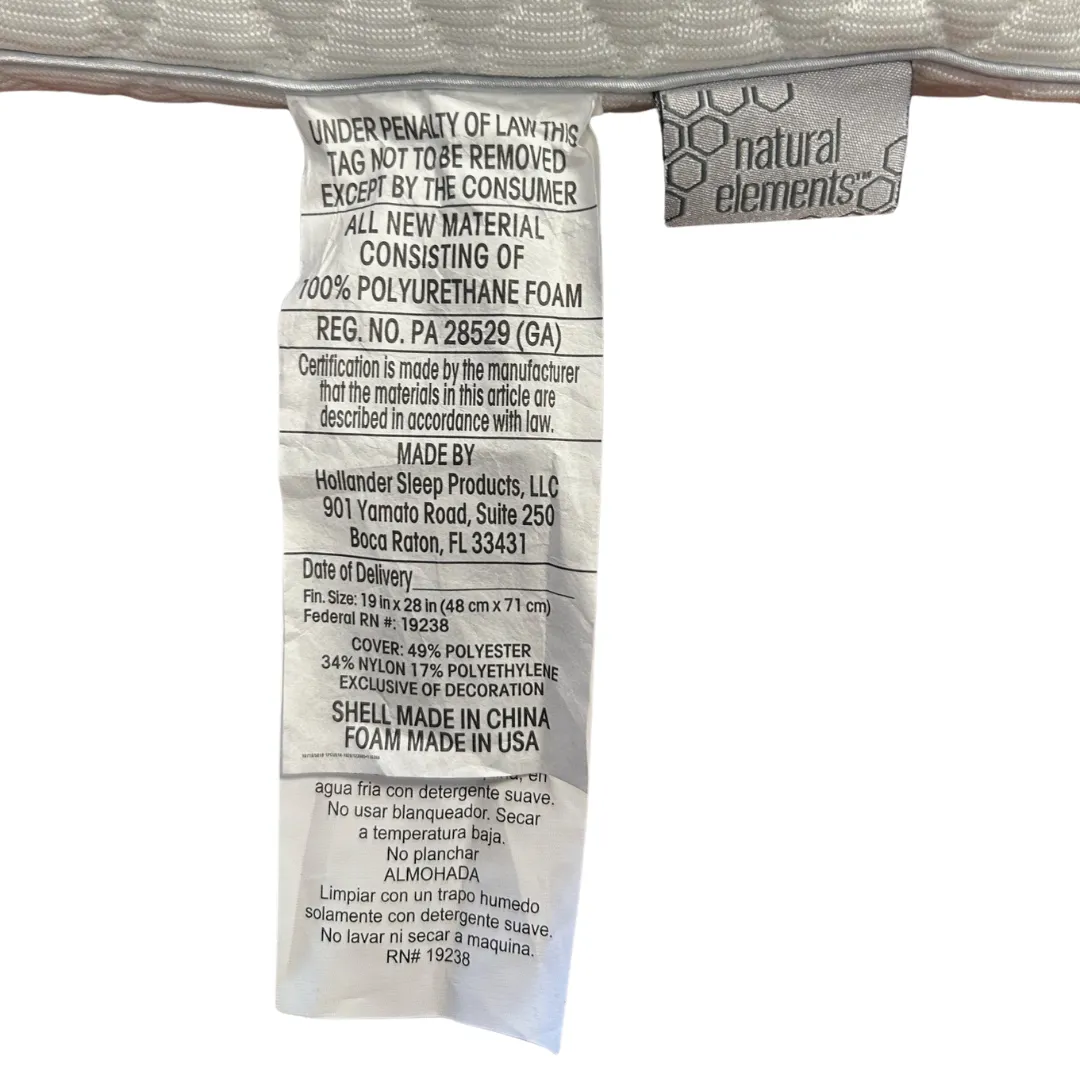 UNDER PENALTY OF LAW THIS
TAG NOT TO BE REMOVED
EXCEPT BY THE CONSUMER
ALL NEW MATERIAL
CONSISTING OF
100% POLYURETHANE FOAM
REG. NO. PA 28529 (GA)
Certification is made by the manufacturer
that the materials in this article are
described in accordance with law.
MADE BY
Hollander Sleep Products, LLC
901 Yamato Road, Suite 250
Boca Raton, FL 33431
Date of Delivery
Fin. Size: 19 in x 28 in (48 cm x 71 cm)
Federal RN #: 19238
COVER: 49% POLYESTER
34% NYLON 17% POLYETHYLENE
EXCLUSIVE OF DECORATION
SHELL MADE IN CHINA
FOAM MADE IN USA
en
agua fria con detergente suave.
No usar blanqueador. Secar
a temperatura baja.
No planchar
ALMOHADA
Limpiar con un trapo humedo
solamente con detergente suave.
No lavar ni secar a maquina.
RN# 19238
natural
elements™